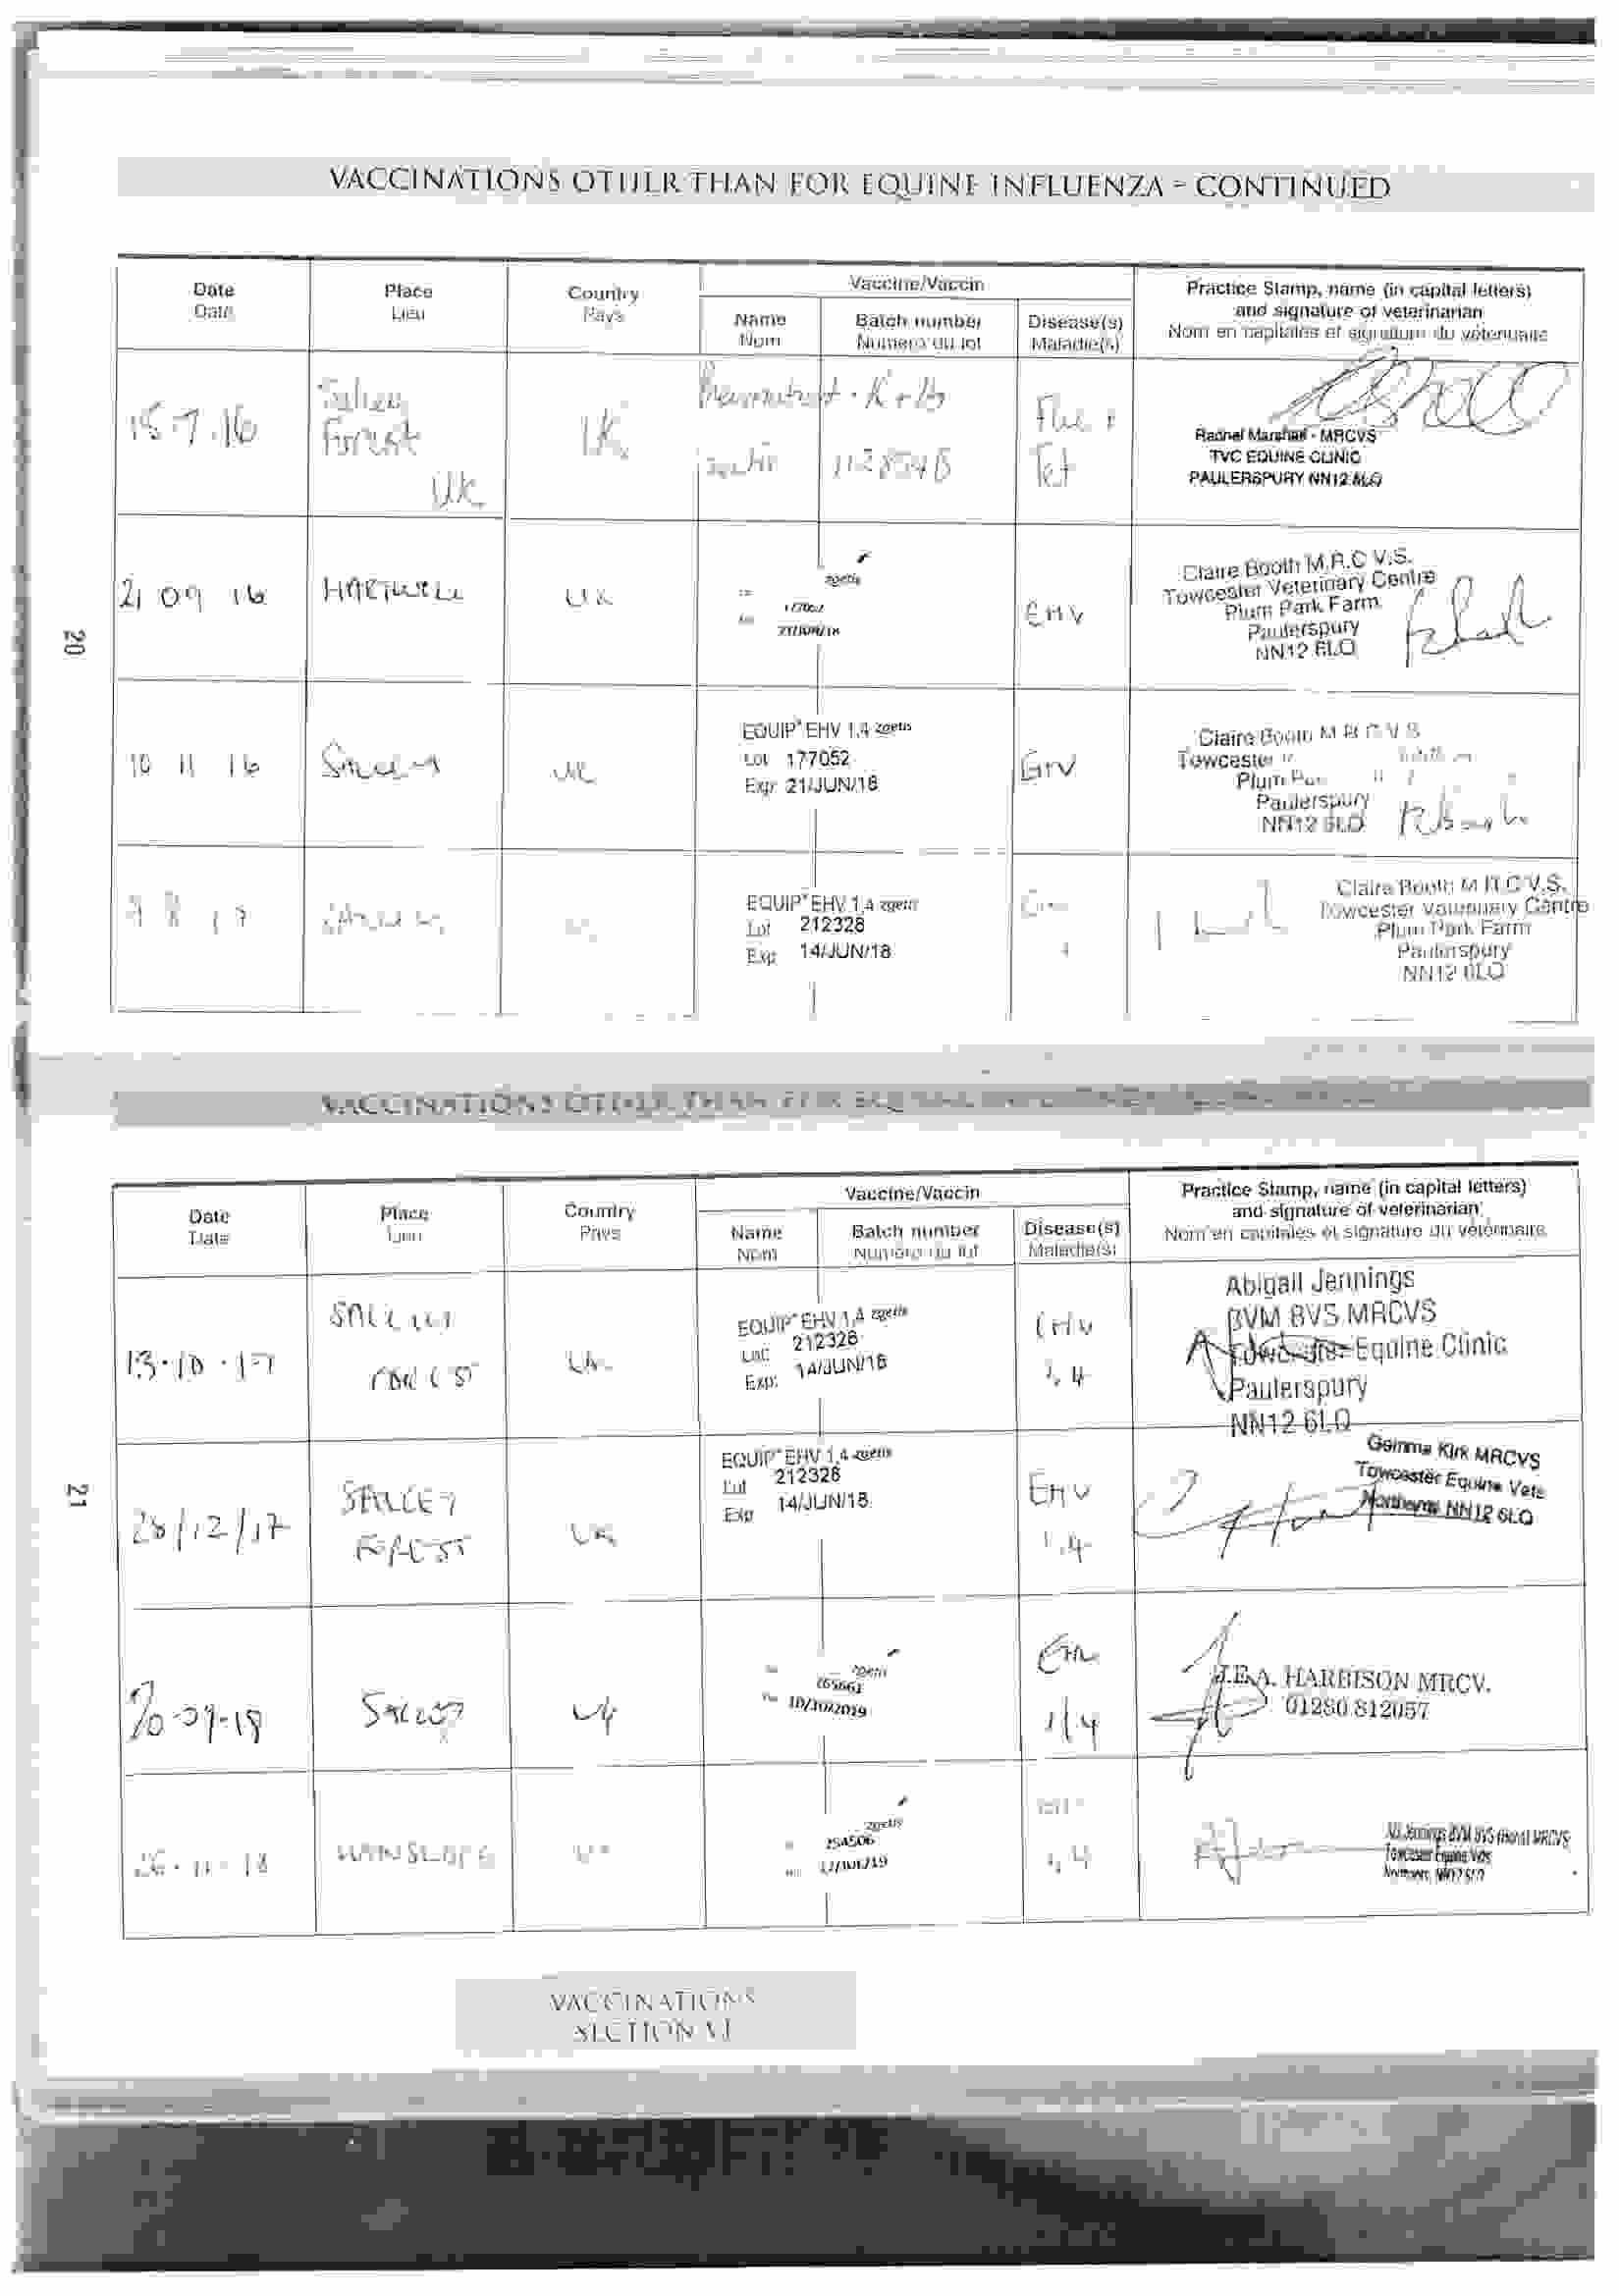 VACCINATIONS OTHER THAN FOR EQUINE INFLUENZA - CONTINUED
Date
Date
Place
Lieu
Country
Pays
Vaccine/Vaccin
Name
Nom
Batch number
Numéro du lot
Disease(s)
Maladie(s)
Practice Stamp, name (in capital letters)
and signature of veterinarian
Nom en capitales et signature du vétérinaire
15.7.16
Forest
UK
UK
Flu +
Tet
Rachel Marshall - MRCVS
TVC EQUINE CLINIC
PAULERSPURY NN12 6LQ
21 09 16
HARTWELL
UK
zoetis
177052
21/JUN/18
EHV
Claire Booth M.R.C.V.S.
Towcester Veterinary Centre
Plum Park Farm
Paulerspury
NN12 6LQ
20
10 11 16
UK
EQUIP EHV 1,4 zoetis
Lot 177052
Exp: 21/JUN/18
EHV
Claire Booth M.R.C.V.S
Towcester
Plum
Paulerspury
NN12 6LQ
EQUIP EHV 1,4 zoetis
Lot 212328
Exp: 14/JUN/18
Claire Booth M.R.C.V.S.
Towcester Veterinary Centre
Plum Park Farm
Paulerspury
NN12 6LQ
VACCINATIONS OTHER THAN FOR
Date
Date
Place
Lieu
Country
Pays
Vaccine/Vaccin
Name
Nom
Batch number
Numéro du lot
Disease(s)
Maladie(s)
Practice Stamp, name (in capital letters)
and signature of veterinarian
Nom en capitales et signature du vétérinaire
13.10.17
SALCEY
FOREST
UK
EQUIP EHV 1,4 zoetis
Lot 212328
Exp: 14/JUN/18
EHV
1,4
Abigail Jennings
BVM BVS MRCVS
Towcester Equine Clinic
Paulerspury
NN12 6LQ
21
28/12/17
SALCEY
FOREST
UK
EQUIP EHV 1,4 zoetis
Lot 212328
Exp 14/JUN/18
EHV
1,4
Gemma Kirk MRCVS
Towcester Equine Vets
Northants NN12 6LQ
SALCEY
UK
zoetis
265661
EHV
1/4
J.E.A. HARBISON MRCV.
01280 812057
26.11.18
HANSLOPE
zoetis
254506
1,4
Jennings BVM BVS (Hons) MRCVS
Towcester Equine Vets
Northants NN12 6LQ
VACCINATIONS
SECTION VI